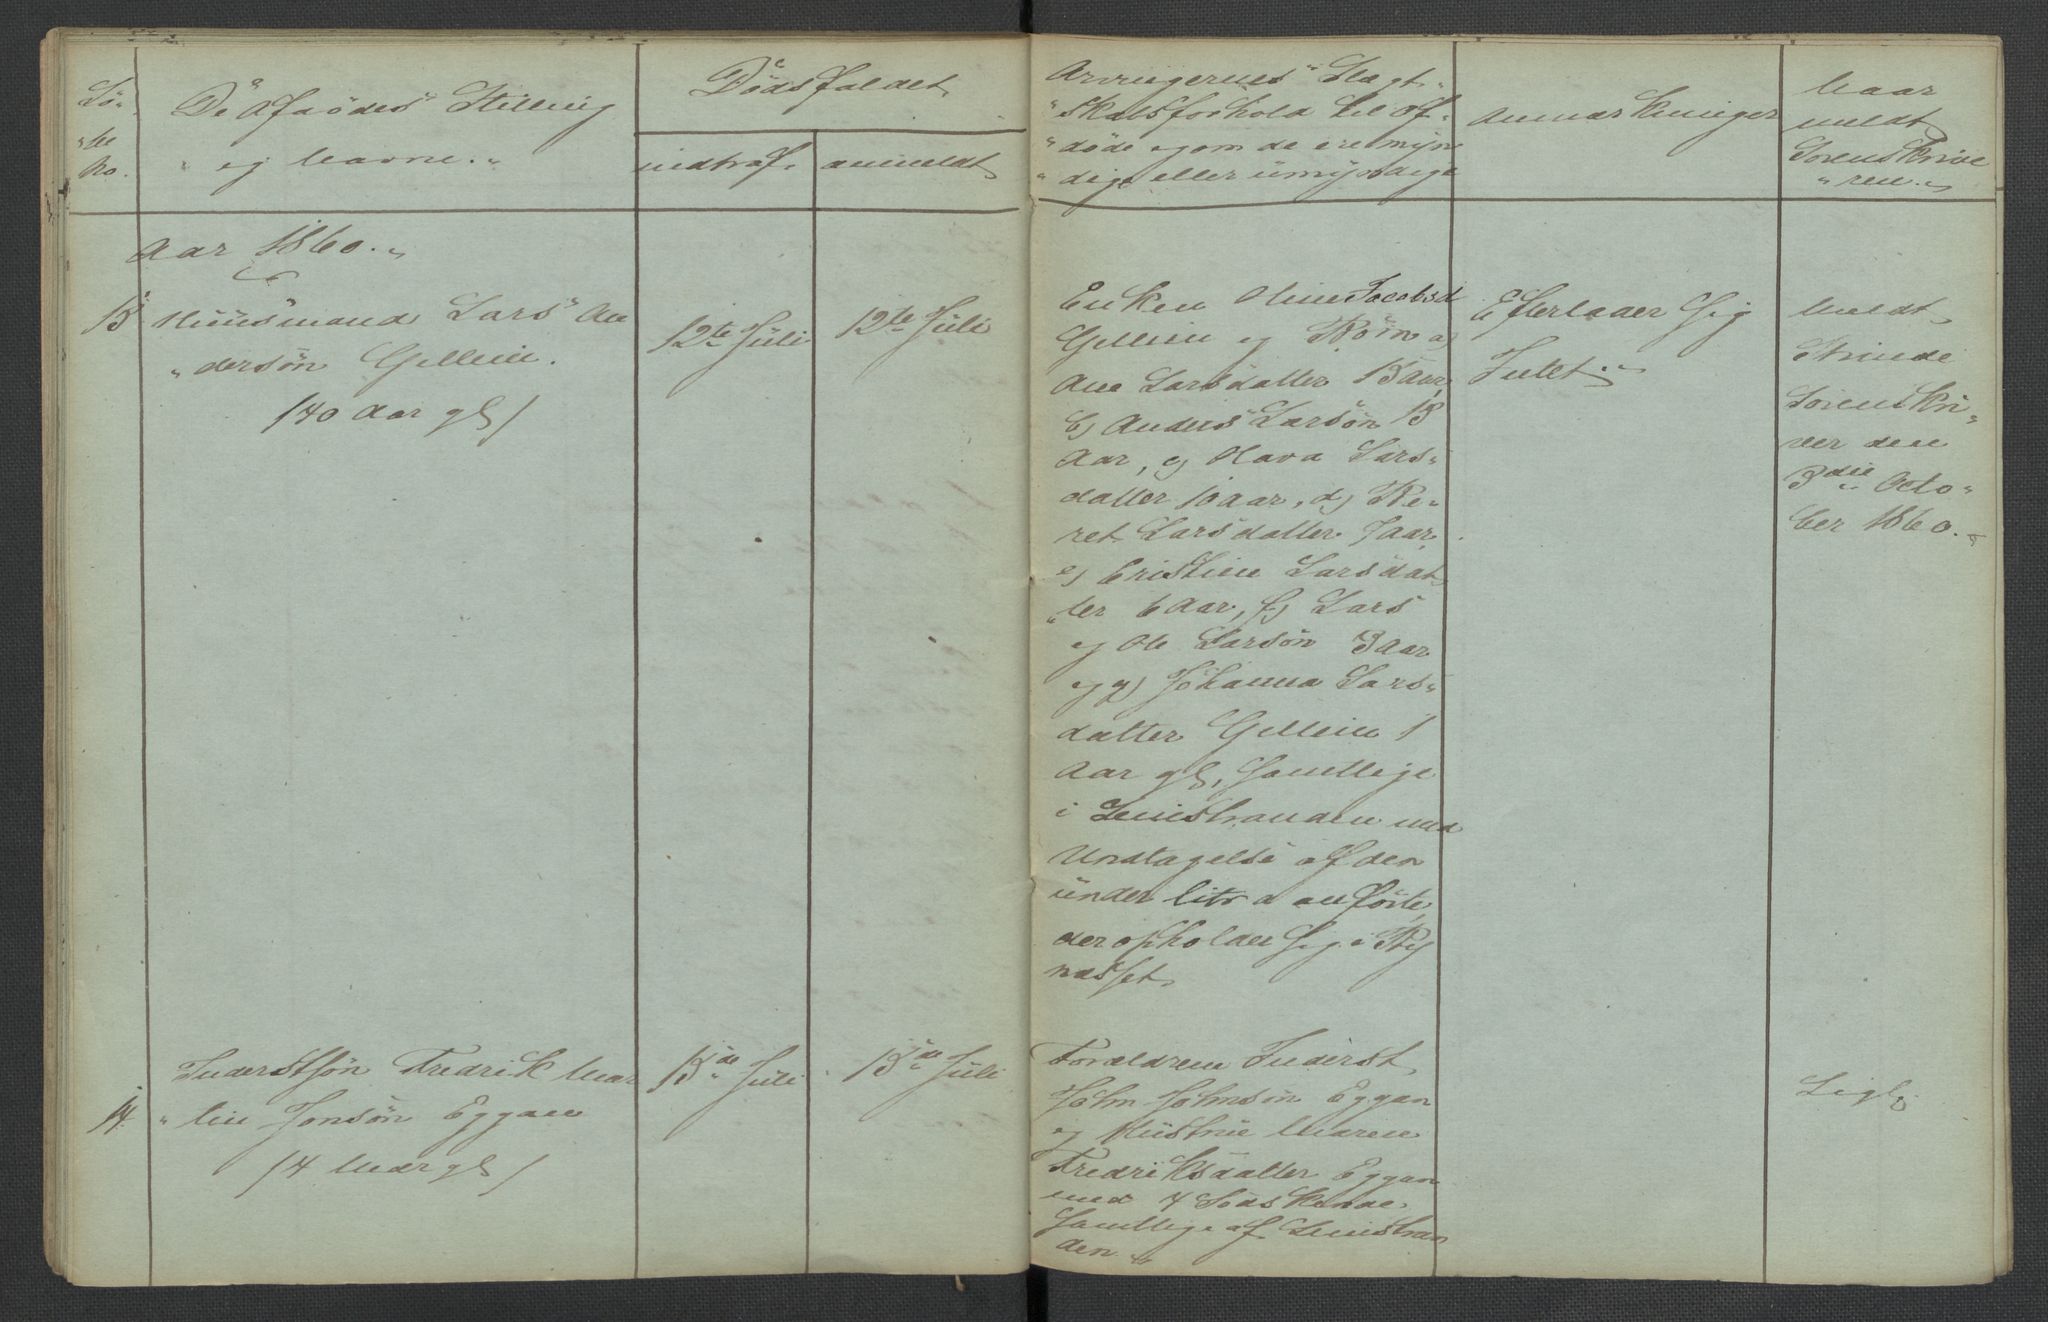 Lø-
"be
No.
De Afdødes Stilling
" og Navne. "
Dødsfaldet
indtraf.
anmeldt
Arvingernes Slægt-
"skabsforhold til Af-
"døde og om de ere myn
"dige eller umyndige
Anmærkninger
Naar
meldt
Sorenskrive
"ren."
Aar 1860."
13
Huusmand Lars An
"dersøn Gellein.
/40 Aar gl/
12te Juli
12te Juli
Enken Oline Jacobsd
Gellein og Børn a)
Ane Larsdatter 15 Aar,
b) Anders Larsøn 13
Aar, c) Olava Lars-
datter 10 Aar, d) Be-
ret Larsdatter 7 Aar
e) Cristine Larsdat
"ter 6 Aar, f) Lars
og Ole Larsøn 3 Aar
og g) Johanna Lars-
datter Gellein 1
Aar gl, samtlige
i Leinstranden med
Undtagelse af den
under litr a anførte,
der opholder sig i By
næsset.
Efterlader sig
Intet."
Meldt
Strinde
Sorenskri-
ver den
3die Octo-
ber 1860.
14
Inderstsøn Fredrik Mar
"tin Jonsøn Eggan
/4 Maar gl/
13de Juli
13de Juli
Forældrene Inderst
John Johnsøn Eggan
og Hustrue Maren
Fredriksdatter Eggan
med 4 Sødskende
samtlige af Leinstran
den "
Ligl.